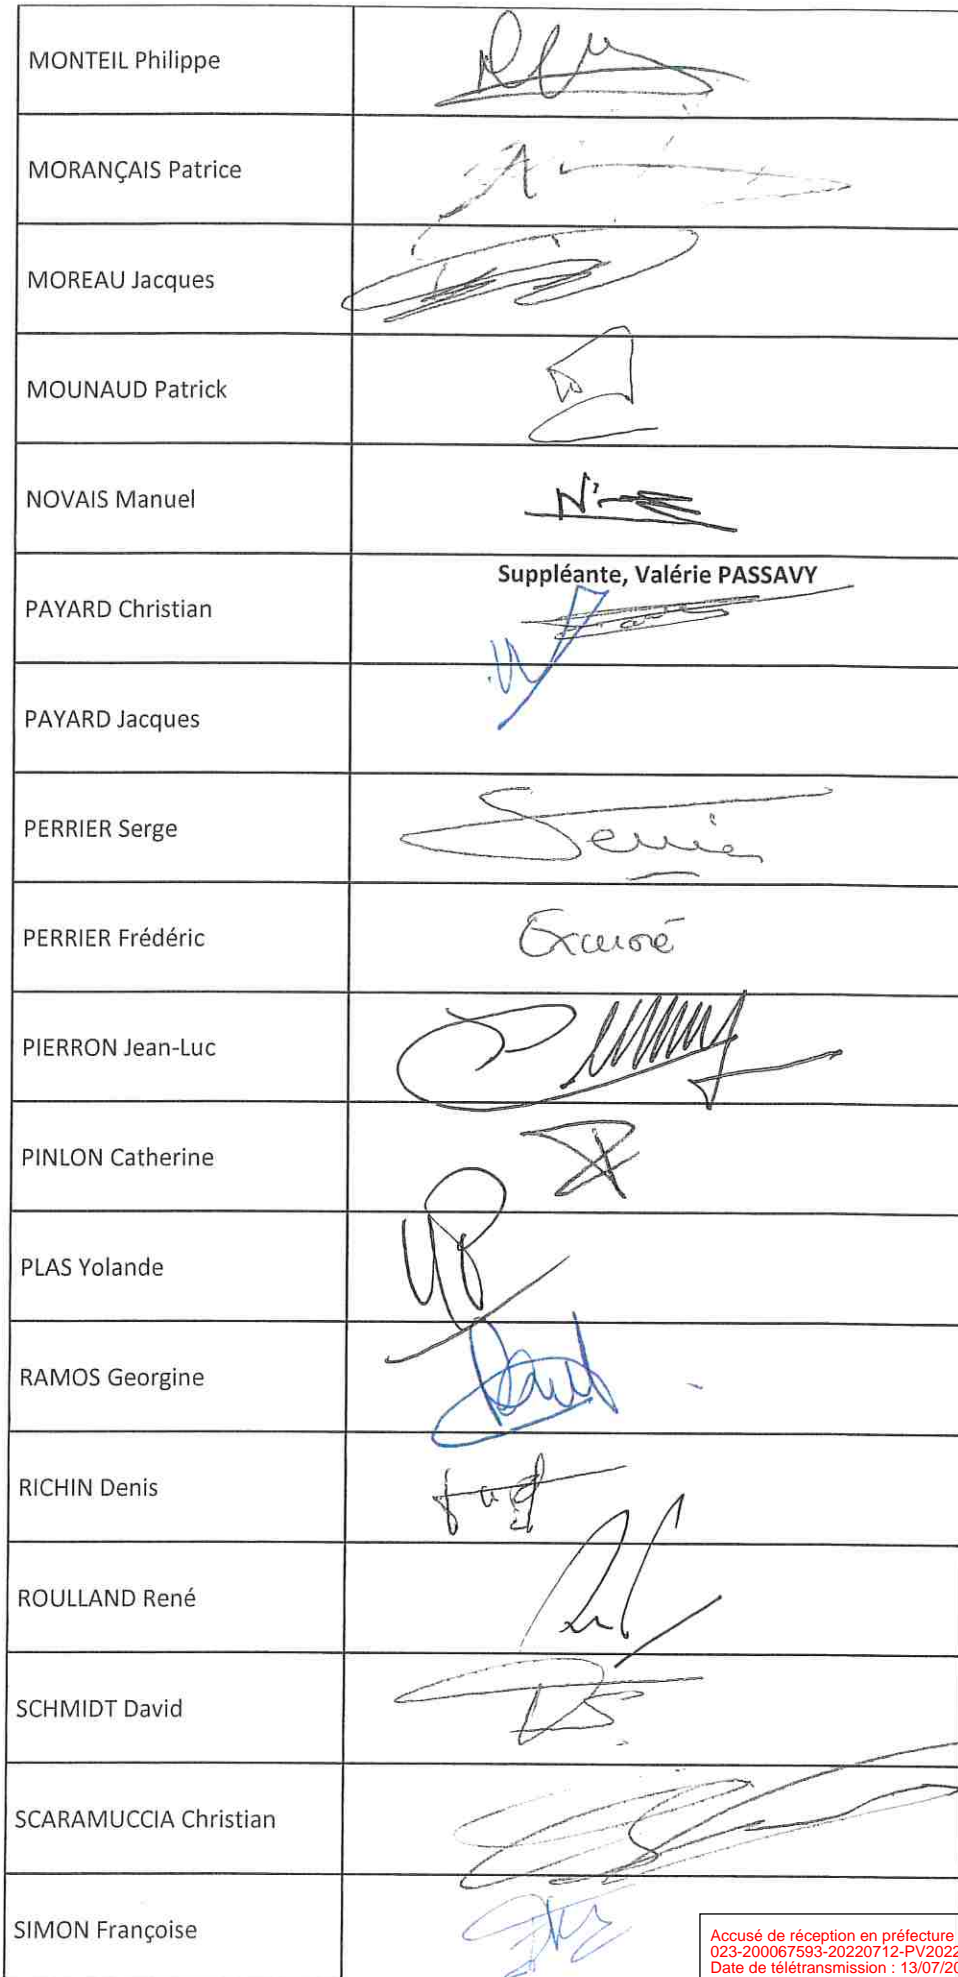 MONTEIL Philippe
MORANÇAIS Patrice
MOREAU Jacques
MOUNAUD Patrick
NOVAIS Manuel
Suppléante, Valérie PASSAVY
PAYARD Christian
PAYARD Jacques
PERRIER Serge
PERRIER Frédéric
Excusé
PIERRON Jean-Luc
PINLON Catherine
PLAS Yolande
RAMOS Georgine
RICHIN Denis
ROULLAND René
SCHMIDT David
SCARAMUCCIA Christian
SIMON Françoise
Accusé de réception en préfecture
023-200067593-20220712-PV2022
Date de télétransmission : 13/07/20